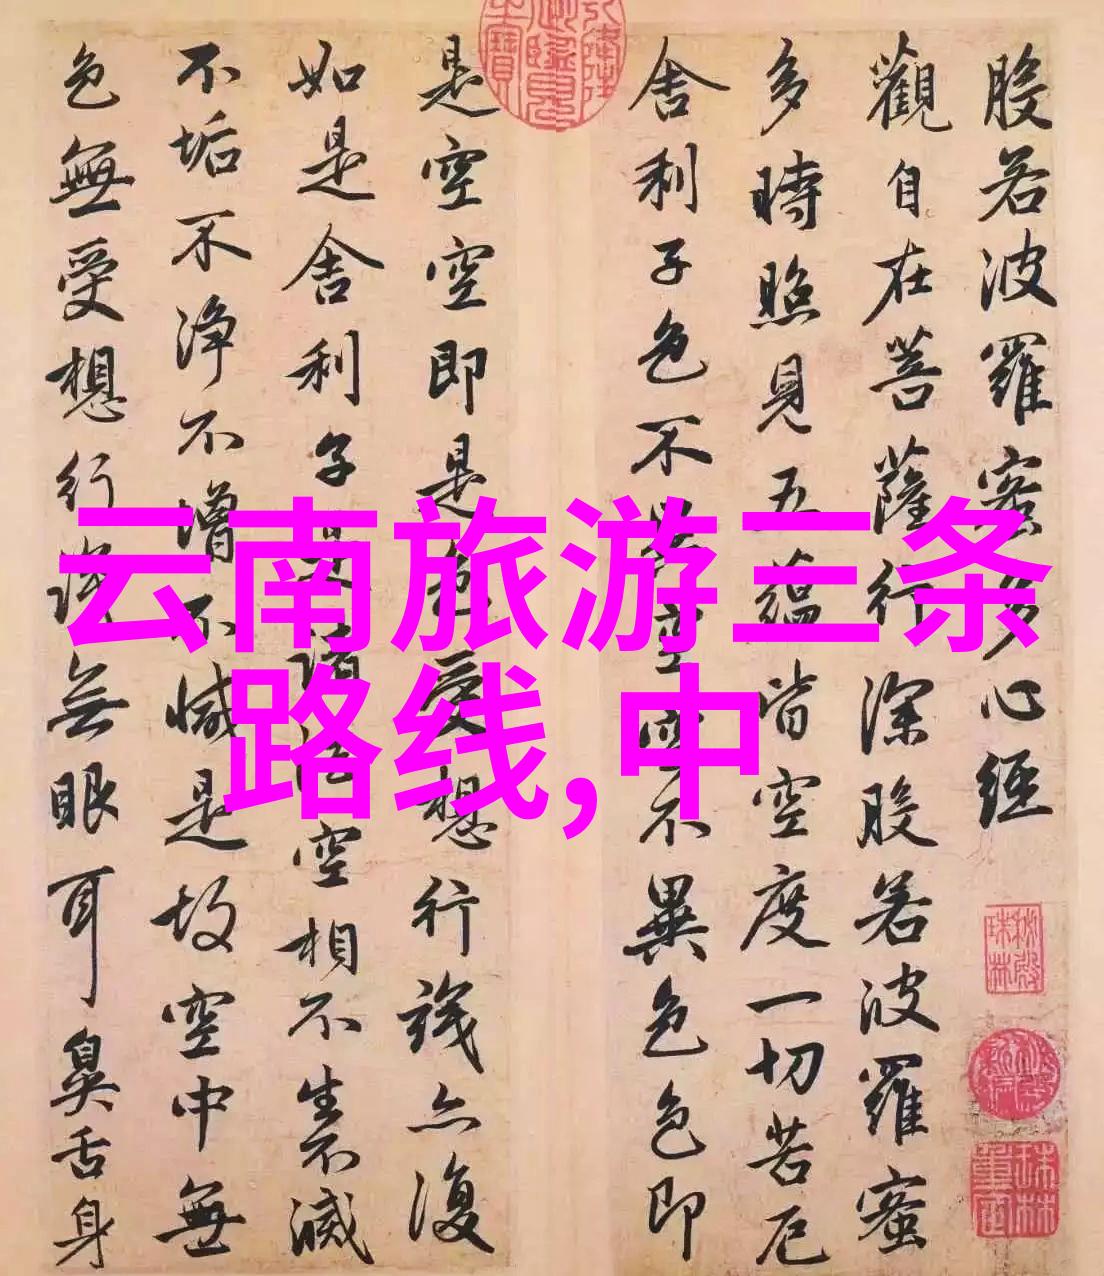 般若波羅蜜多心經
觀自在菩薩行深般若波羅蜜
多時照見五蘊皆空度一切苦厄
舍利子色不異空空不異色色即
是空空即是色受想行識亦復
如是舍利子是諸法空相不生不滅
不垢不淨不增不減是故空中無
色無受想行識無眼耳鼻舌身
云南旅游三条
路线,中